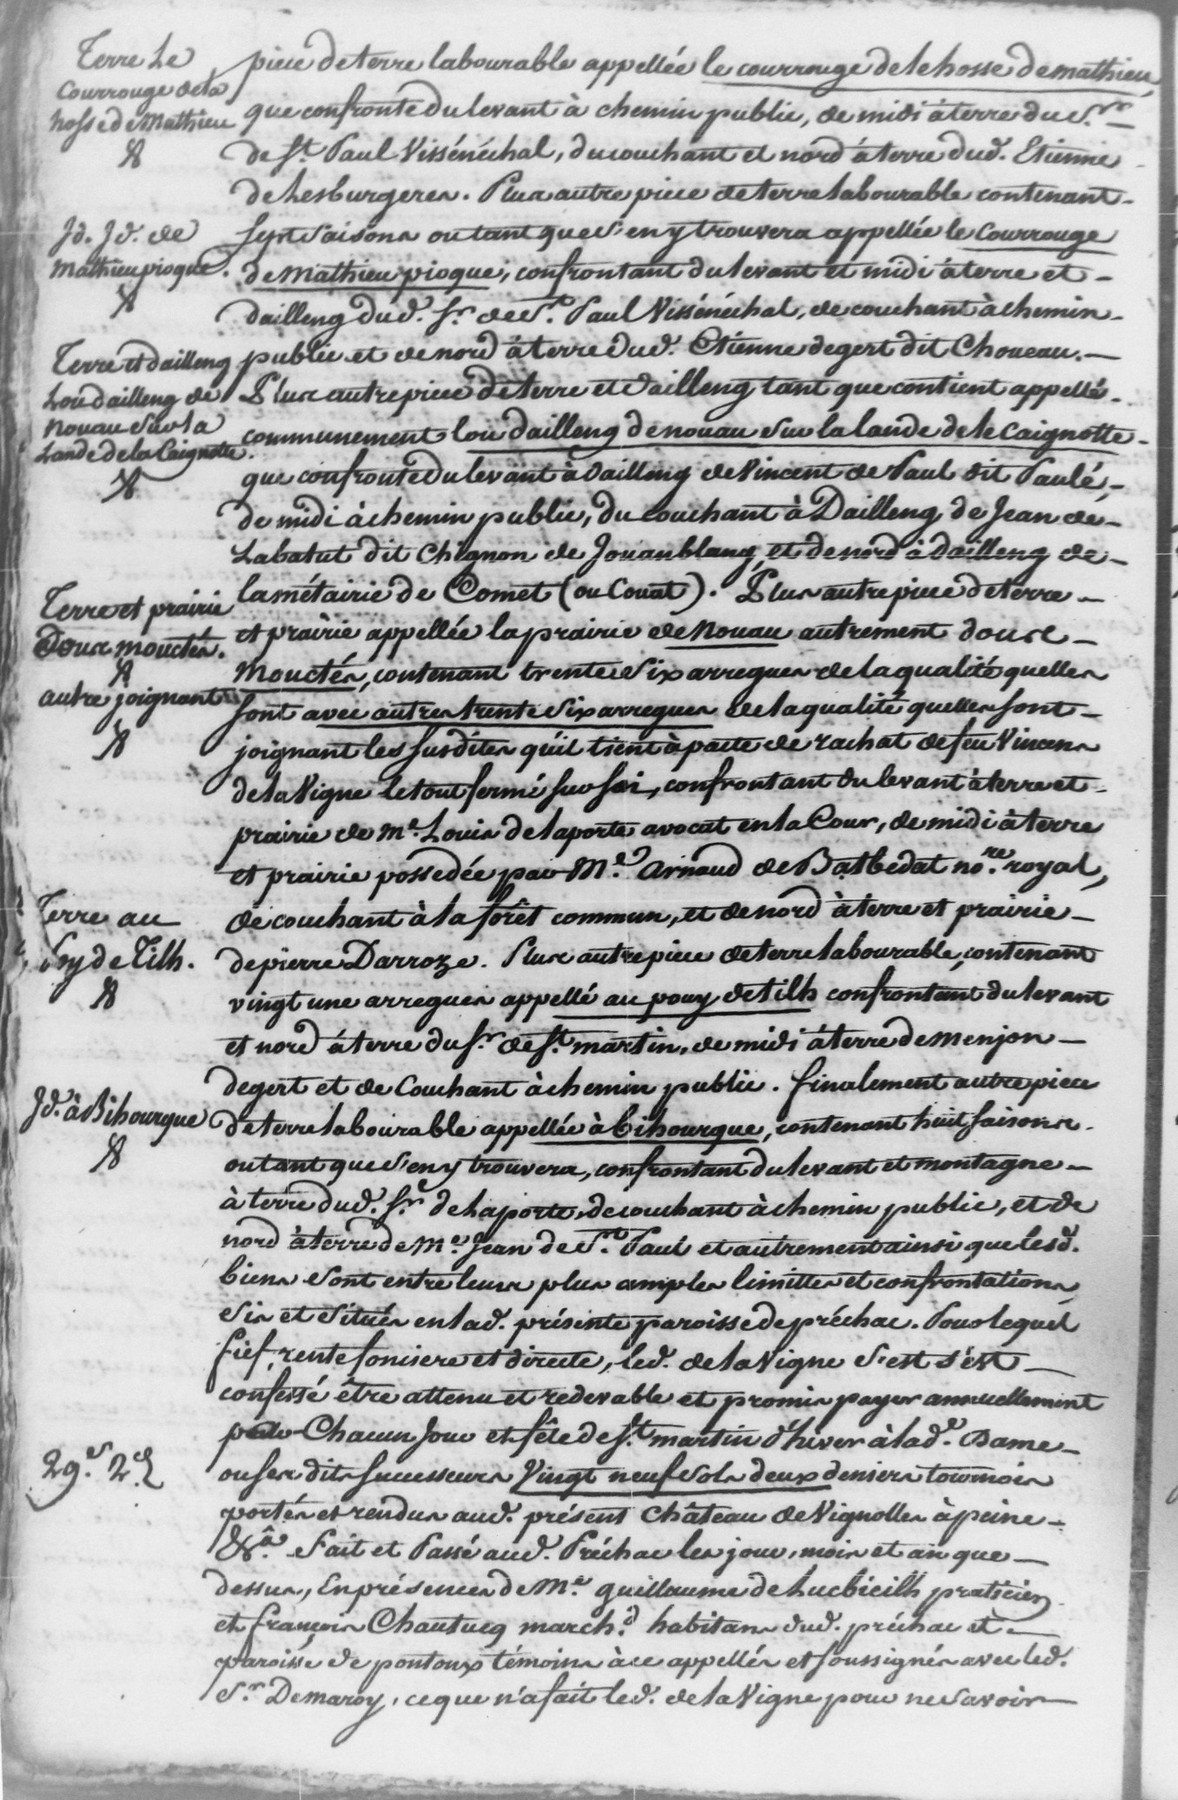 Terre Le
Courrouge dela
hosse de Mathieu
piece de terre labourable appellée le courrouge de lehosse de mathieu,
que confronte du levant à chemin public, de midi à terre du S.r
de S.t Paul Vissénéchal, du couchant et nord à terre dud. Etienne
de Lesburgeres. Plus autre piece de terre labourable contenant
Jd. Jd. de
Mathieu pioque.
sept saisons ou tant que s'en y trouvera appellée le Courrouge
de Mathieu pioque, confrontant du levant et midi à terre et
dailleng dud. S.r de S.t Paul Vissénéchal, de couchant à chemin
Terre et dailleng
Lou dailleng de
Nouau Sur la
Lande de la Caignotte.
public et de nord à terre dud. Etienne degert dit Choueau.
Plus autre piece de terre et dailleng tant que contient appellé
communement lou dailleng de nouau sur la lande de le Caignotte
que confronte du levant à dailleng de Vincent de Paul dit Paulé,
de midi à chemin public, du couchant à Dailleng de Jean de
Labatut dit Chignon de Jouanblanq et de nord à dailleng de
la métairie de Comet (ou Couat). Plus autre piece de terre
Terre et prairie
Doux mouctés.
autre joignant
et prairie appellée la prairie de Nouau autrement doux
Mouctés, contenant trente six arregues de la qualité quelles
sont avec autres trente six arregues de la qualité quelles sont
joignant les susdites qu'il tient à pacte de rachat de feu Vincens
de la Vigne le tout fermé sur soi, confrontant du levant à terre et
prairie de M.e Louis de laporte avocat en la Cour, de midi à terre
et prairie possedée par M.e Arnaud de Batbedat no.re royal,
de couchant à la forêt commun, et de nord à terre et prairie
Terre au
Poy de Tilh.
de pierre Darroze. Plus autre piece de terre labourable, contenant
vingt une arregues appellé au pouy de tilh confrontant du levant
et nord à terre du S.r de S.t martin, de midi à terre de Menjon
degert et de Couchant à chemin public. finalement autre piece
Jd. à Bihourque
de terre labourable appellée à bihourque, contenant huit saisons
ou tant que s'en y trouvera, confrontant du levant et montagne
à terre dud. S.r de Laporte, de couchant à chemin public, et de
nord à terre de M.e Jean de S.t Paul et autrement ainsi que lesd.
biens sont entre leurs plus amples limittes et confrontations
sis et situés en lad. présente paroisse de préchac. Pour lequel
fief, rente fonciere et directe, led. de la Vigne s'est s'est
confessé être attenu et redevable et promis payer annuellement
par Chacun Jour et fête de S.t martin d'hiver à lad.e Dame
29.s 2.d
ou ses dits successeurs Vingt neuf sols deux deniers tournois
portés et rendus aud. présent Château de Vignolles à peine
&.a Fait et Passé aud. Préchac les jour, mois et an que
dessus, En présences de M.e guillaume de Lucbieilh praticien
et françois Chautucq march.d habitans dud. préchac et
paroisse de pontonx témoins à ce appellés et soussignés avec led.
S.r Demaroy, ce que n'a fait led. de la Vigne pour ne savoir